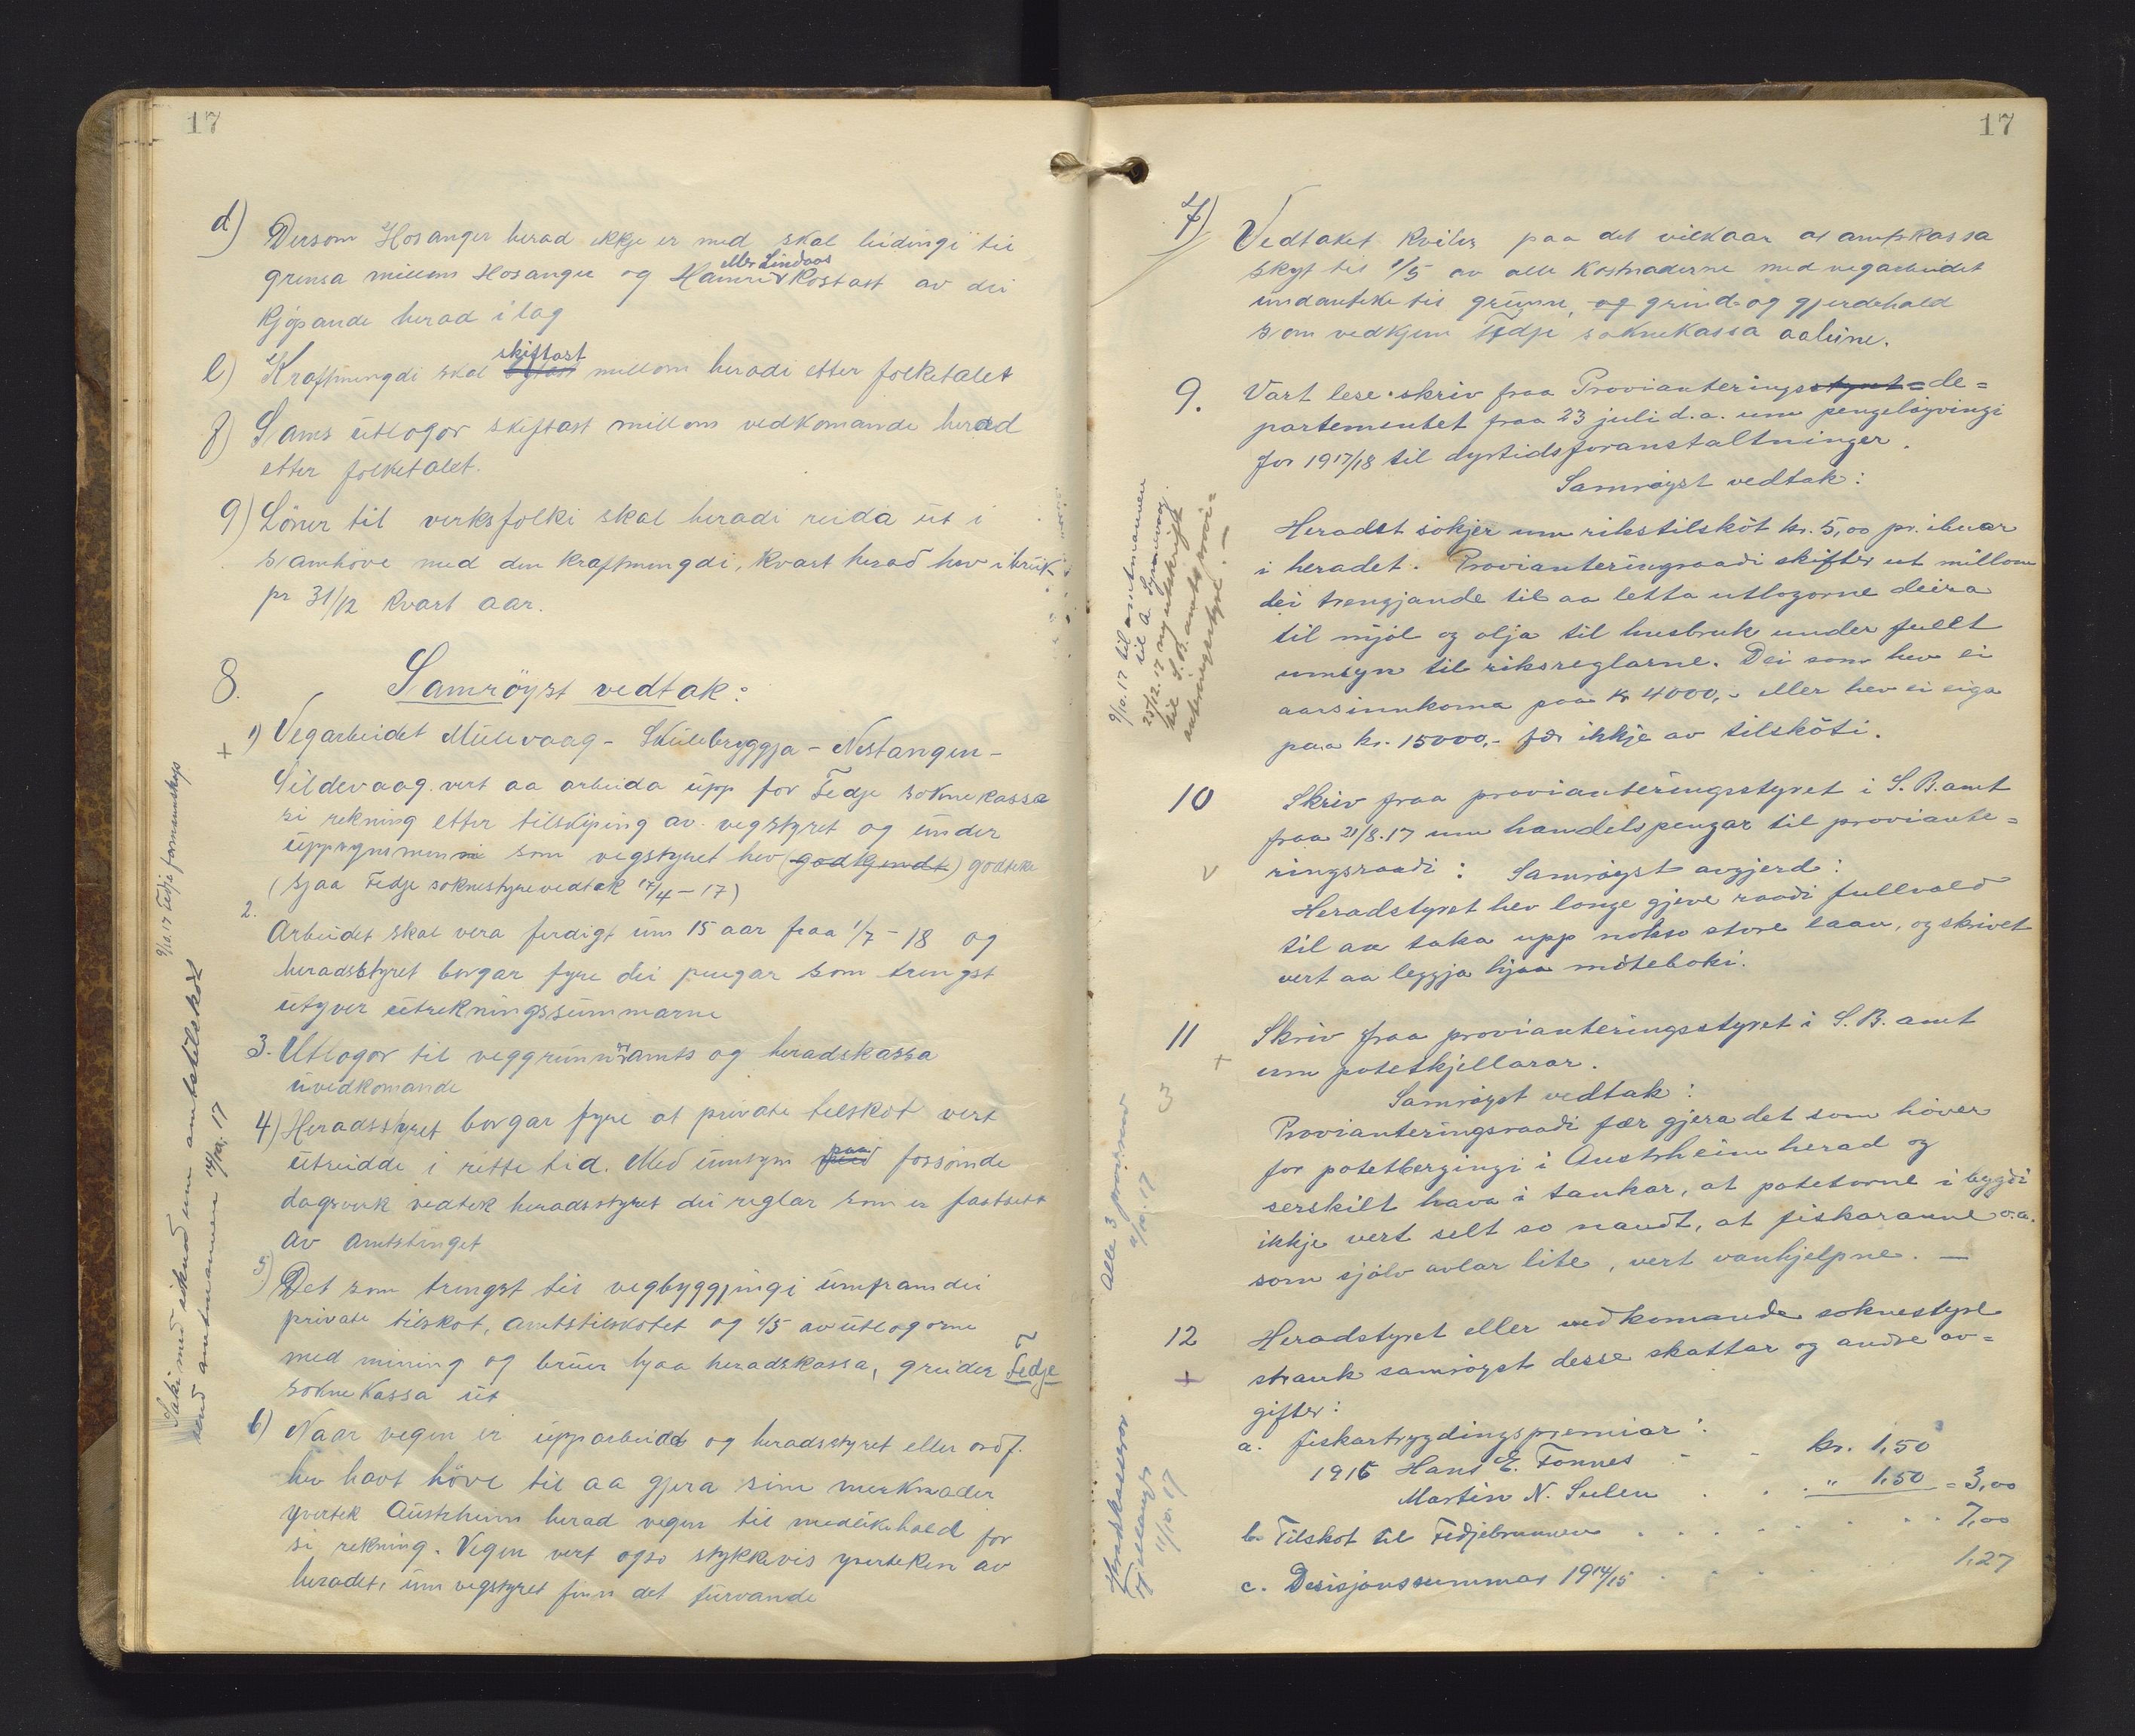 17
d) Dersom Hosanger herad ikkje er med skal leidingi til
grensa millom Hosanger og Hamre eller Lindaas kostast av dei
kjöpande herad i lag
e) Kraftmengdi skal skiftast millom heradi etter folketalet
f) Sams utlogor skiftast millom vedkomande herad
etter folketalet.
g) Löner til verksfolki skal heradi reida ut i
samhöve med den kraftmengdi, kvart herad hev i bruk
pr 31/12 kvart aar.
8. Samröyst vedtak:
+ 1) Vegarbeidet Mulevaag - Skulebryggja - Nestangen -
Sildevaag vert aa arbeida upp for Fedje soknekassa
si rekning etter tilskiping av vegstyret og under
uppsynsmenn som vegstyret hev (godkjendt) godteke
(sjaa Fedje soknestyrevedtak 17/4 - 17)
2. Arbeidet skal vera ferdigt um 15 aar fraa 1/7 - 18 og
heradsstyret borgar fyre dei pengar som trengst
utyver utrekningssummarne
3. Utlogor til veggrunn er amts og heradskassa
uvedkomande
4) Heradsstyret borgar fyre at private tilskot vert
utreidde i rette tid. Med umsyn paa forsömde
dagsverk vedtek heradsstyret dei reglar som er fastsett
av Amtstinget
5) Det som trengst til vegbyggjingi umfram dei
private tilskot, Amtstilskotet og 1/5 av utlogorne
med mining og bruer hjaa heradskassa, greider Fedje
soknekassa ut
6) Naar vegen er upparbeidd og heradsstyret eller ordf.
hev havt höve til aa gjera sine merknader
yvertek Austrheim herad vegen til medlikehald for
si rekning. Vegen vert ogso stykkevis yverteken av
heradet, um vegstyret finn det turvande
9/10.17 Fedje formannskap
Saki med söknad um amtstilskot
send amtmannen 14/12 17
17
7) Vedtaket kviler paa det vilkaar at amtskassa
skyt til 1/5 av alle kostnaderne med vegarbeidet
undanteke til grunn, og grind og gjerdehald
som vedkjem Fedje soknekassa aaleine.
9. Vart lese skriv fraa Provianteringsstyret= de=
partementet fraa 23 juli d.a. um pengelöyvingi
for 1917/18 til dyrtidsforanstaltninger.
Samröyst vedtak:
Heradet sökjer um rikstilsköt kr. 5,00 pr. ibuar
i heradet. Provianteringsraadi skifter ut millom
dei trengjande til aa letta utlogorne deira
til mjöl og olja til husbruk under fullt
umsyn til riksreglarne. Dei som hev ei
aarsinnkoma paa kr 4000,- eller hev ei eiga
paa kr. 15000,- fær ikkje av tilsköti.
9/10.17 til amtmannen
til S.B. amts provi=
anteringsstyre. -
10 Skriv fraa provianteringsstyret i S.B. amt
fraa 21/8.17 um handelspengar til proviante=
v ringsraadi: Samröyst avgjerd:
Heradstyret hev longe gjeve raadi fullvald
til aa taka upp nokso store laan, og skrivet
vert aa leggja hjaa möteboki.
11 Skriv fraa provianteringsstyret i S.B. amt
+ um potetkjellarar.
Samröyst vedtak:
Provianteringsraadi fær gjera det som höver
for potetbergingi i Austrheim herad og
serskilt hava i tankar, at potetorne i bygdi
ikkje vert selt so naudt, at fiskaranne o.a.
som sjölv avlar lite, vert vanhjelpne. -
Alle 3 prov.raad
9/10.17
12 Heradstyret eller vedkomande soknestyre
+ strauk samröyst desse skattar og andre av=
gifter:
a. fiskartrygdingspremiar:
1916 Hans E. Fonnes - - kr. 1,50
Martin N. Sulen . . . " 1,50 = 3,00
b. Tilskot til Fedjebrunnen . . . . . . . 7,00
c. Desisjonssummar 1914/15 . . . . . 1,27
Heradskasserar
11/10.17